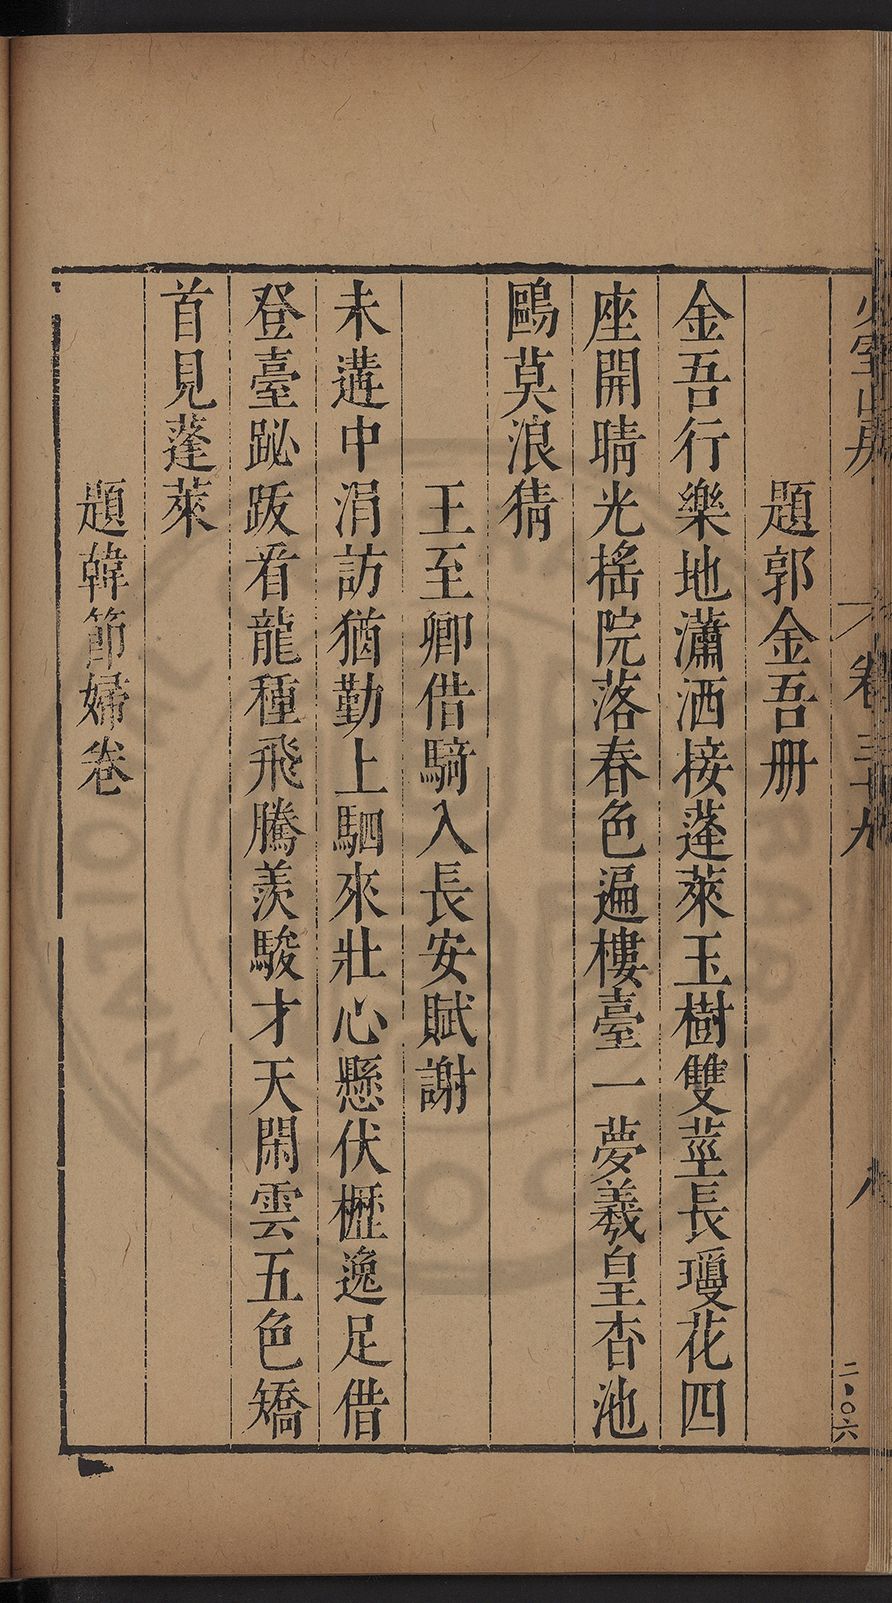 少室山房
卷三十九
八
二·〇六
題郭金吾册
金吾行樂地瀟洒接蓬萊玉樹雙莖長瓊花四
座開晴光搖院落春色遍樓臺一夢羲皇杳池
鷗莫浪猜
王至卿借騎入長安賦謝
未遘中涓訪猶勤上駟來壯心懸伏櫪逸足借
登臺跐跋看龍種飛騰羨駿才天閑雲五色矯
首見蓬萊
題韓節婦卷